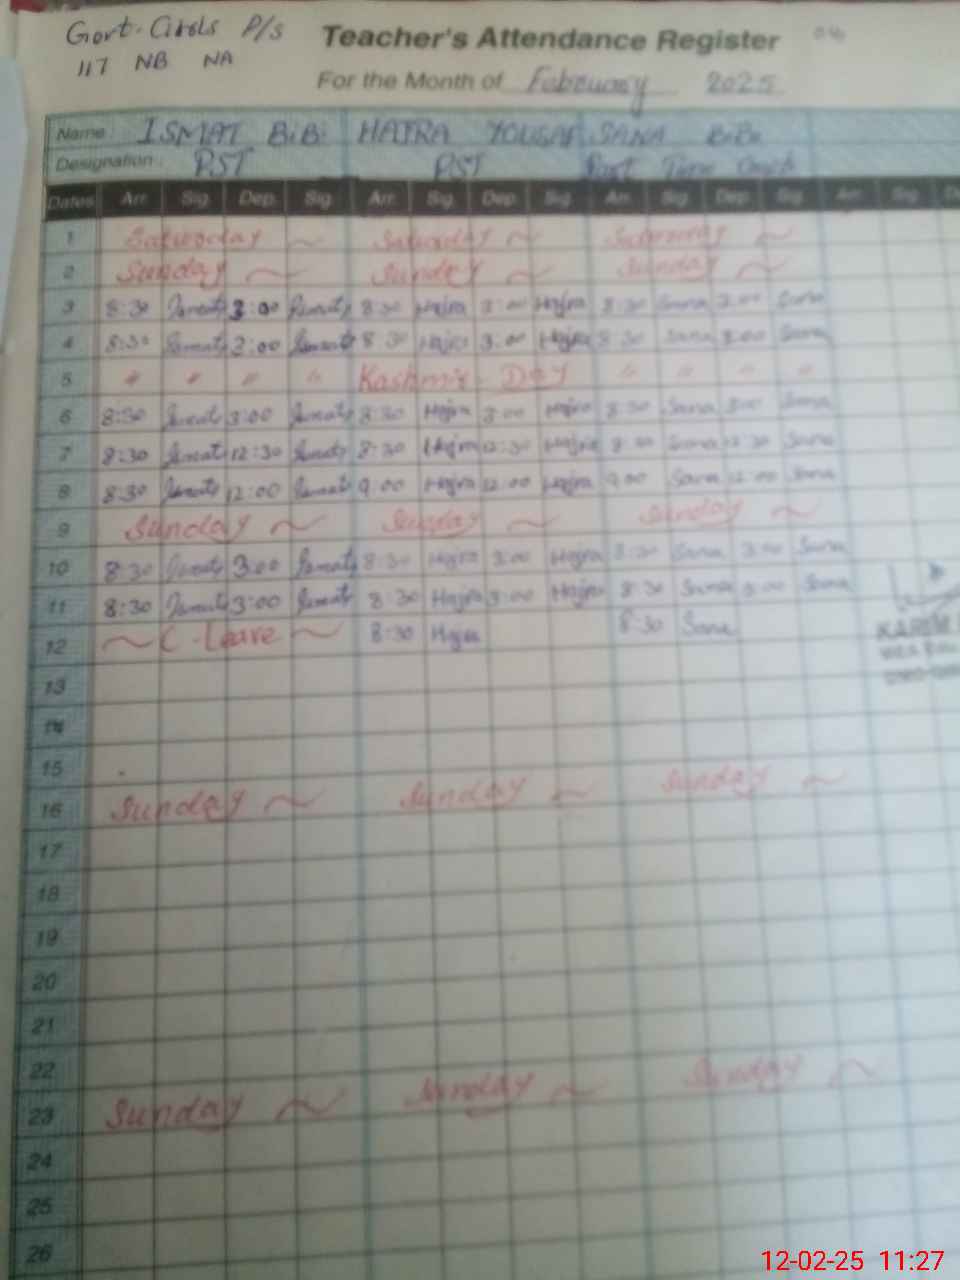 Govt. Girls P/S
117 NB NA
Teacher's Attendance Register
For the Month of February 2025
Name: ISMAT BiBi HAJRA YOUSAF SANA BiBi
Designation: PST PST Part Time
Dates Arr. Sig. Dep. Sig. Arr. Sig. Dep. Sig. Arr. Sig. Dep. Sig. Arr. Sig.
1 Saturday ~ Saturday ~ Saturday ~
2 Sunday ~ Sunday ~ Sunday ~
3 8:30 Ismat 3:00 Ismat 8:30 Hajra 3:00 Hajra 8:30 Sana 3:00 Sana
4 8:30 Ismat 3:00 Ismat 8:30 Hajra 3:00 Hajra 8:30 Sana 3:00 Sana
5 " " " " Kashmir Day " " " "
6 8:30 Ismat 3:00 Ismat 8:30 Hajra 3:00 Hajra 8:30 Sana 3:00 Sana
7 8:30 Ismat 12:30 Ismat 8:30 Hajra 12:30 Hajra 8:30 Sana 12:30 Sana
8 8:30 Ismat 12:00 Ismat 9:00 Hajra 12:00 Hajra 9:00 Sana 12:00 Sana
9 Sunday ~ Sunday ~ Sunday ~
10 8:30 Ismat 3:00 Ismat 8:30 Hajra 3:00 Hajra 8:30 Sana 3:00 Sana
11 8:30 Ismat 3:00 Ismat 8:30 Hajra 3:00 Hajra 8:30 Sana 3:00 Sana
12 ~ C-Leave ~ 8:30 Hajra 8:30 Sana
KARIM
13
14
15
16 Sunday ~ Sunday ~ Sunday ~
17
18
19
20
21
22
23 Sunday ~ Sunday ~ Sunday ~
24
25
26
12-02-25 11:27